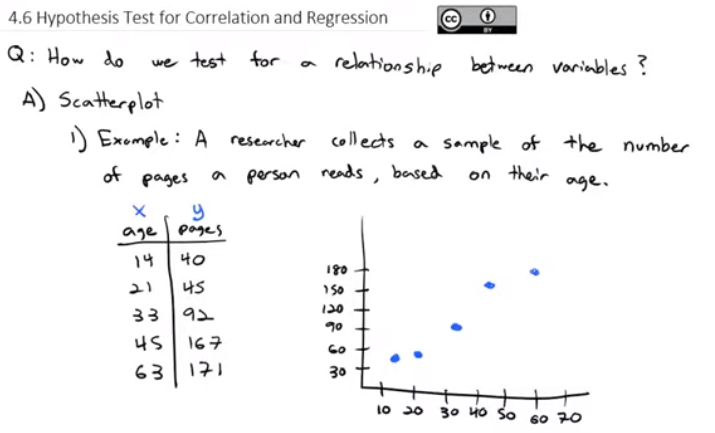 4.6 Hypothesis Test for Correlation and Regression
cc BY
Q: How do we test for a relationship between variables?
A) Scatterplot
1) Example: A researcher collects a sample of the number
of pages a person reads, based on their age.
x y
age pages
14 40
21 45
33 92
45 167
63 171
180
150
120
90
60
30
10 20 30 40 50 60 70